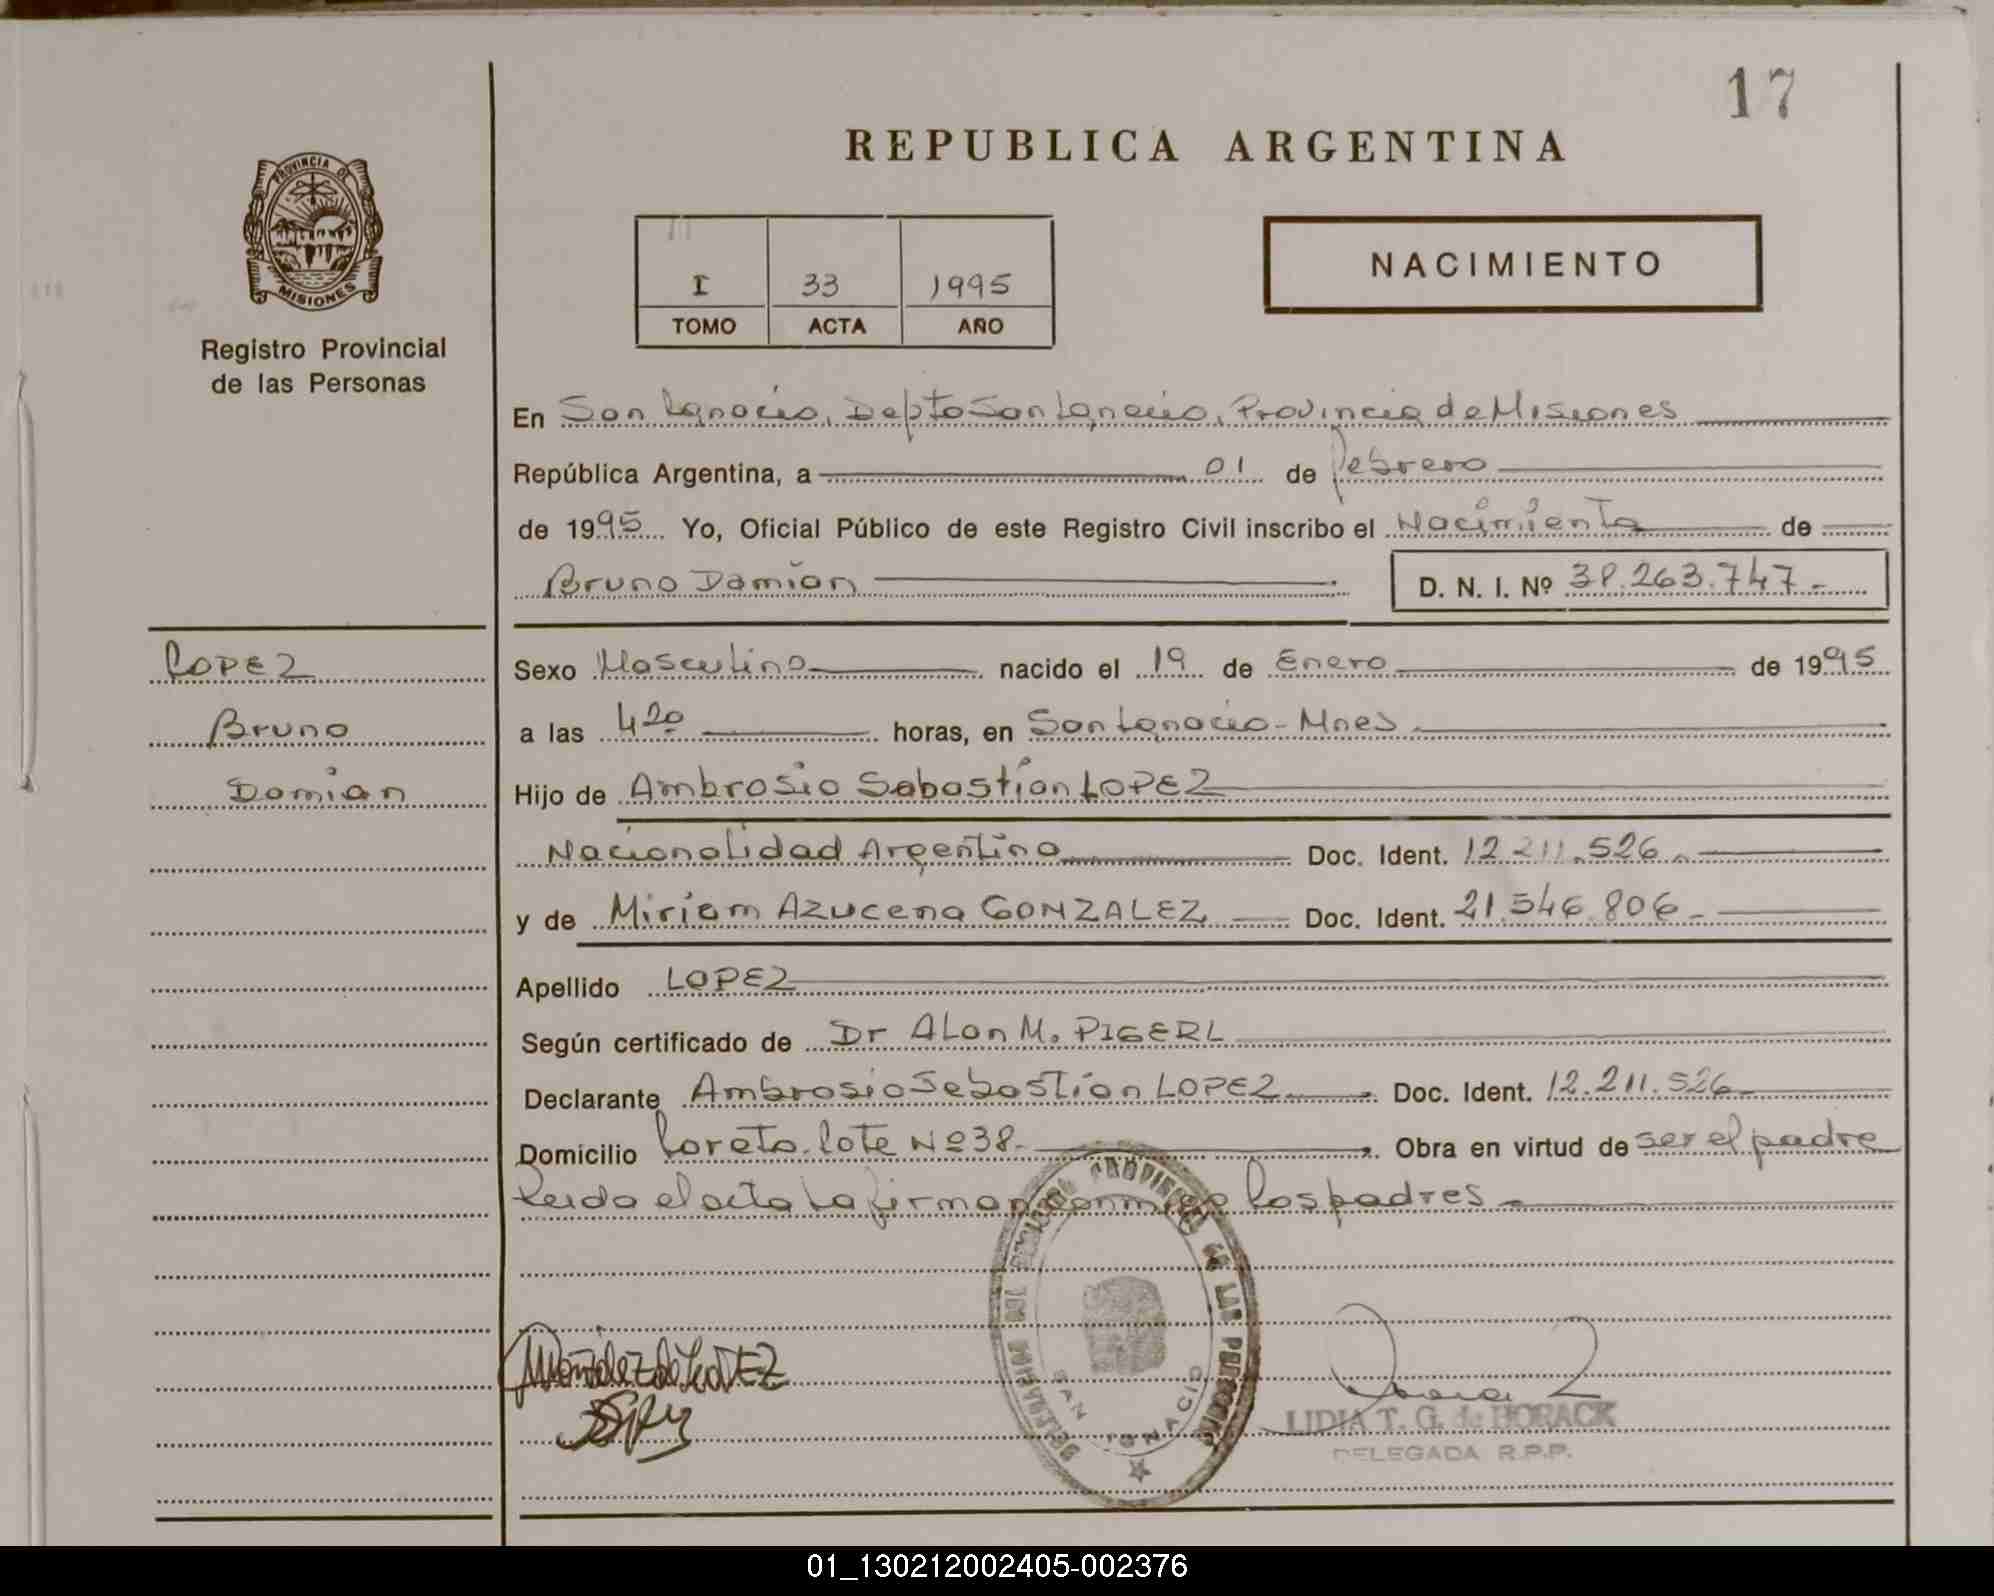 17
REPUBLICA ARGENTINA
PROVINCIA DE
MISIONES
Registro Provincial
de las Personas
I 33 1995
TOMO ACTA AÑO
NACIMIENTO
En San Ignacio, Depto San Ignacio, Provincia de Misiones
República Argentina, a 01 de febrero
de 1995 Yo, Oficial Público de este Registro Civil inscribo el Nacimiento de
Bruno Damian D. N. I. Nº 38.263.747.-
LOPEZ
Bruno
Damian
Sexo Masculino nacido el 19 de Enero de 1995
a las 4 20 horas, en San Ignacio - Mnes
Hijo de Ambrosio Sebastian LOPEZ
Nacionalidad Argentina Doc. Ident. 12.211.526.-
y de Miriam Azucena GONZALEZ Doc. Ident. 21.546.806.-
Apellido LOPEZ
Según certificado de Dr ALan M. PIGERL
Declarante Ambrosio Sebastian LOPEZ Doc. Ident. 12.211.526
Domicilio Loreto. Lote Nº 38.- Obra en virtud de ser el padre
Leida el acta la firman conmigo los padres
DELEGACION DEL REGISTRO PROVINCIAL DE LAS PERSONAS
SAN IGNACIO
LIDIA T. G. de HORACK
DELEGADA R.P.P.
01_130212002405-002376